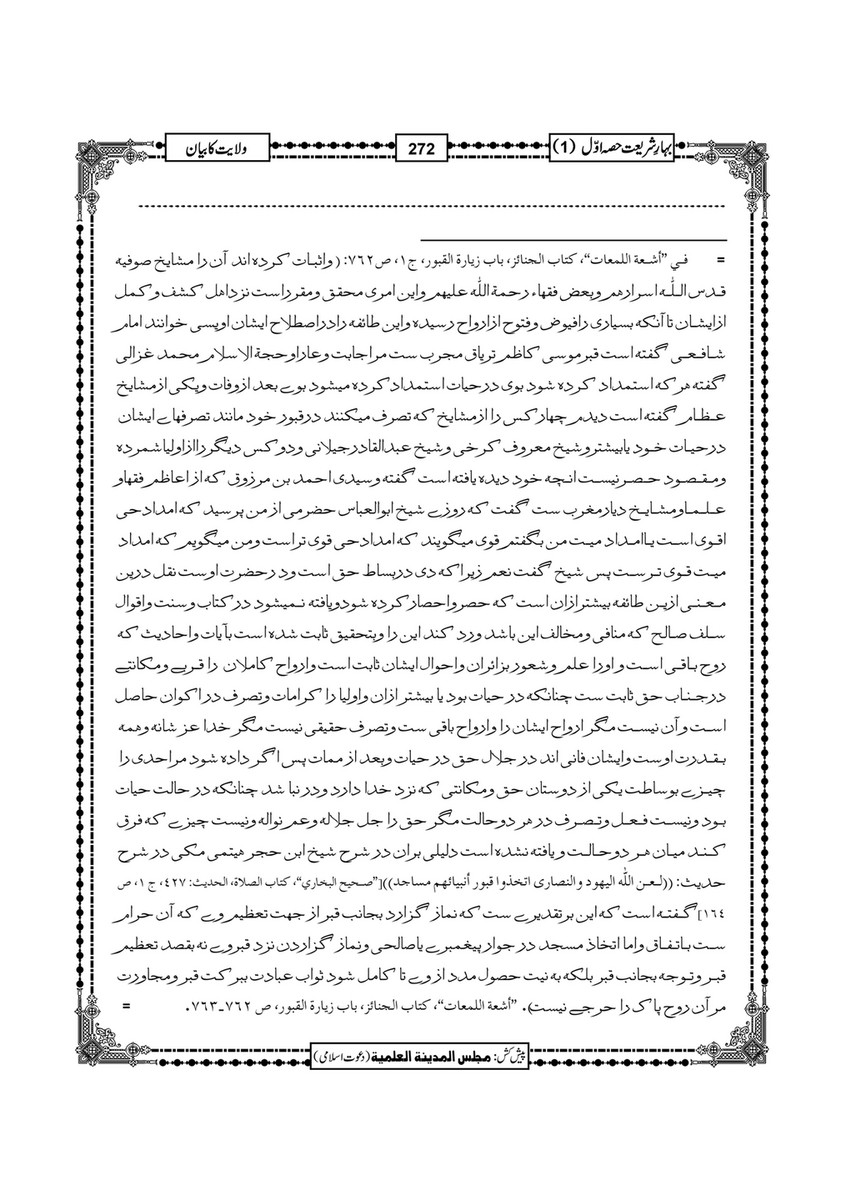 بہارِشریعت حصہ اوّل (1)
272
ولایت کا بیان
= في ”أشعة اللمعات“، كتاب الجنائز، باب زيارة القبور، ج۱، ص۷۶۲: (واثبات کردہ اند آن را مشایخ صوفیه
قدس اللّٰه اسرارهم وبعض فقهاء رحمة اللّٰه علیهم واین امری محقق ومقرر است نزد اهل کشف وکمل
از ایشان تا آنکه بسیاری را فیوض وفتوح از ارواح رسیده واین طائفه را در اصطلاح ایشان اویسی خوانند امام
شافعی گفته است قبر موسی کاظم تریاق مجرب ست مر اجابت دعا را وحجة الاسلام محمد غزالی
گفته هر که استمداد کرده شود بوی در حیات استمداد کرده میشود بوے بعد از وفات ویکی از مشایخ
عظام گفته است دیدم چهار کس را از مشایخ که تصرف میکنند در قبور خود مانند تصرفهاے ایشان
در حیات خود یا بیشتر وشیخ معروف کرخی وشیخ عبدالقادر جیلانی ودو کس دیگر را از اولیا شمرده
ومقصود حصر نیست انچه خود دیده یافته است گفته وسیدی احمد بن مرزوق که از اعاظم فقها و
علما ومشایخ دیار مغرب ست گفت که روزے شیخ ابو العباس حضرمی از من پرسید که امداد حی
اقوی است یا امداد میت من بگفتم قوی میگویند که امداد حی قوی تر است ومن میگویم که امداد
میت قوی تر ست پس شیخ گفت نعم زیرا که دی در بساط حق است ودر حضرت اوست نقل درین
معنی ازین طائفه بیشتر ازان است که حصر واحصار کرده شود ویافته نمیشود در کتاب وسنت واقوال
سلف صالح که منافی ومخالف این باشد ورد کند این را وبتحقیق ثابت شده است بآیات واحادیث که
روح باقی است واورا علم وشعور بزائران واحوال ایشان ثابت است وارواح کاملان را قربے ومکانتے
در جناب حق ثابت ست چنانکه در حیات بود یا بیشتر ازان واولیا را کرامات وتصرف در اکوان حاصل
است وآن نیست مگر ارواح ایشان را وارواح باقی ست وتصرف حقیقی نیست مگر خدا عز شانه وهمه
بقدرت اوست وایشان فانی اند در جلال حق در حیات وبعد از ممات پس اگر داده شود مر احدی را
چیزے بوساطت یکی از دوستان حق ومکانتی که نزد خدا دارد ودر نبا شد چنانکه در حالت حیات
بود ونیست فعل وتصرف در هر دو حالت مگر حق را جل جلاله وعم نواله ونیست چیزے که فرق
کند میان هر دو حالت ویافته نشده است دلیلی بران در شرح شیخ ابن حجر هیتمی مکی در شرح
حدیث: ((لعن اللّٰه اليهود والنصارى اتخذوا قبور أنبيائهم مساجد))[”صحيح البخاري“، كتاب الصلاة، الحديث: ٤٢٧، ج ١، ص
١٦٤] گفته است که این بر تقدیرے ست که نماز گزارد بجانب قبر از جهت تعظیم وے که آن حرام
ست باتفاق واما اتخاذ مسجد در جوار پیغمبرے یا صالحی ونماز گزاردن نزد قبروے نه بقصد تعظیم
قبر وتوجه بجانب قبر بلکه به نیت حصول مدد ازوے تا کامل شود ثواب عبادت ببرکت قبر ومجاورت
مر آن روح پاک را حرجے نیست). ”أشعة اللمعات“، كتاب الجنائز، باب زيارة القبور، ص ۷۶۲-۷۶۳. =
پیش کش: مجلس المدينة العلمية (دعوت اسلامی)